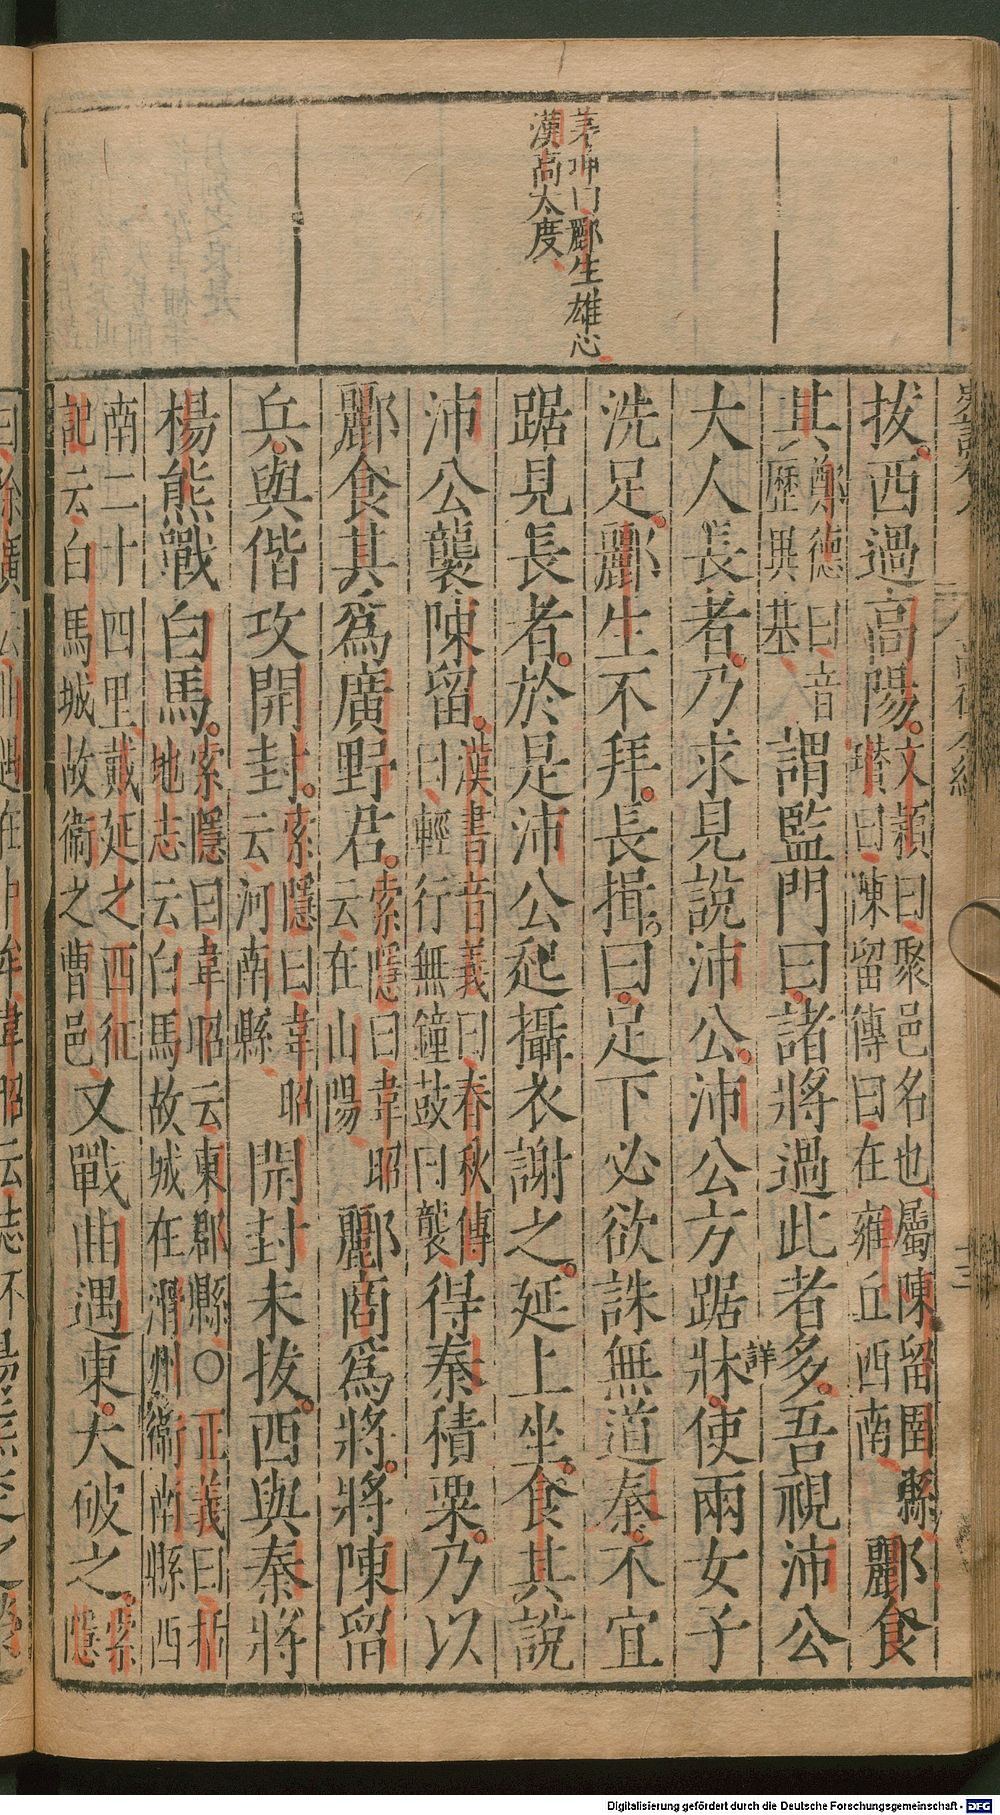 茅坤曰酈生雄心
漢高大度
拔西過高陽文穎曰聚邑名也屬陳留圉縣瓉曰陳留傳曰在雍丘西南酈食
其鄭德曰音歷異基謂監門曰諸將過此者多吾視沛公
大人長者乃求見說沛公沛公方踞牀使兩女子
詳
洗足酈生不拜長揖曰足下必欲誅無道秦不宜
踞見長者於是沛公起攝衣謝之延上坐食其說
沛公襲陳留漢書音義曰春秋傳曰輕行無鐘鼓曰襲得秦積粟乃以
酈食其爲廣野君索隱曰韋昭云在山陽酈商爲將將陳留
兵與偕攻開封索隱曰韋昭云河南縣開封未拔西與秦將
楊熊戰白馬索隱曰韋昭云東郡縣○正義曰括地志云白馬故城在滑州衞南縣西
南二十四里戴延之西征記云白馬城故衞之曹邑又戰曲遇東大破之索隱
Digitalisierung gefördert durch die Deutsche Forschungsgemeinschaft - DFG